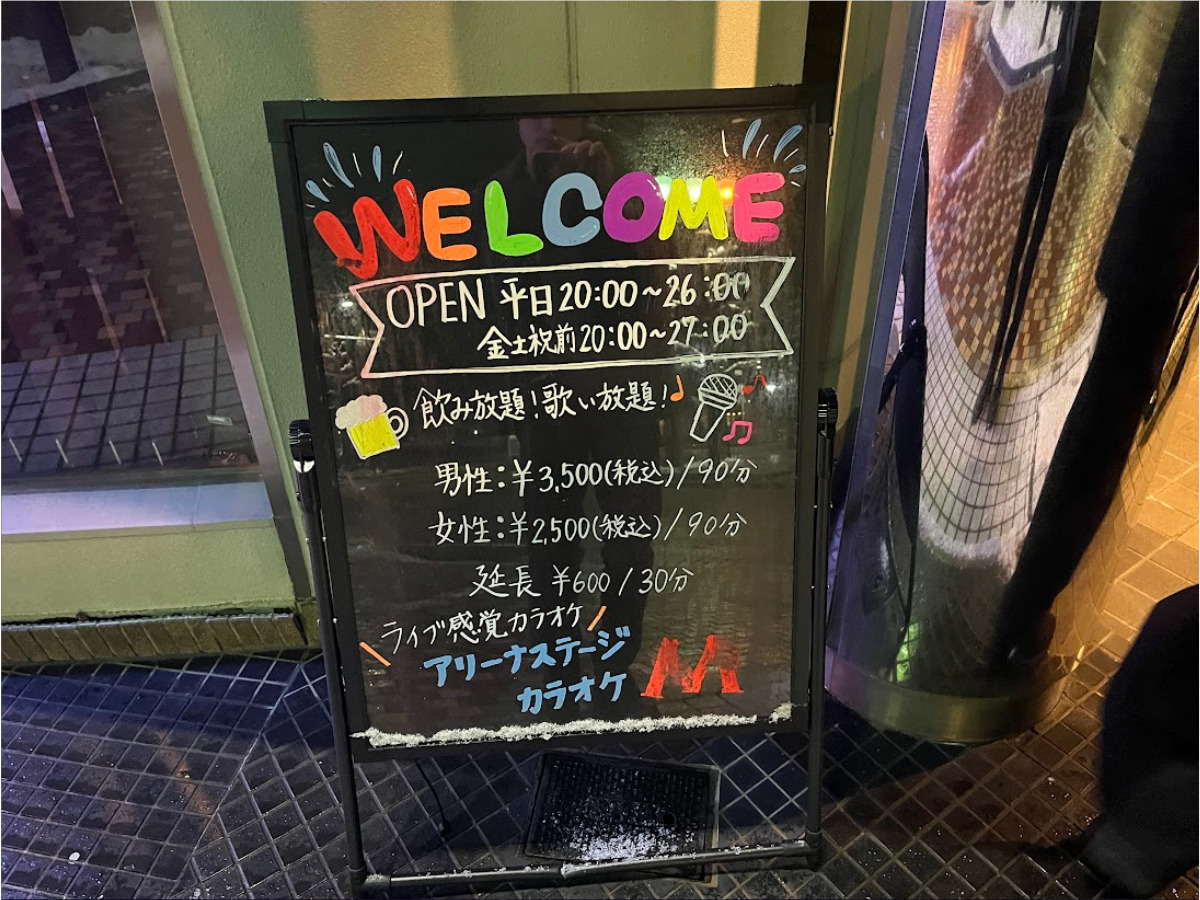 WELCOME
OPEN 平日20:00〜26:00
金土祝前20:00〜27:00
飲み放題!歌い放題!
男性:¥3,500(税込)/90分
女性:¥2,500(税込)/90分
延長 ¥600/30分
\ライブ感覚カラオケ/
アリーナステージ
カラオケ
M